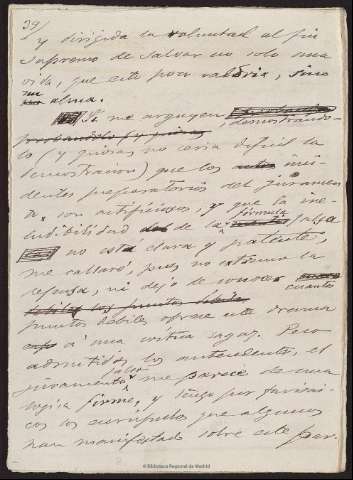 39/
y dirigida la voluntad al fin
supremo de salvar no solo una
vida, que esto poco valdria, sino
un alma.
Si me arguyen, demostrando-
lo (y quizas no seria dificil la
demostracion) que los inci-
dentes preparatorios del juramen-
to, son artificiosos, y que la ine-
ludibilidad de la fórmula falsa
no está clara y patente,
me callaré, pues no extrema la
defensa, ni dejo de conocer cuantos
puntos débiles ofrece este drama
a una critica sagaz. Pero
admitidos los antecedentes, el
juramento falso me parece de una
lógica firme, y tengo por farisai-
cos los escrúpulos que algunos
han manifestado sobre este par-
Biblioteca Regional de Madrid